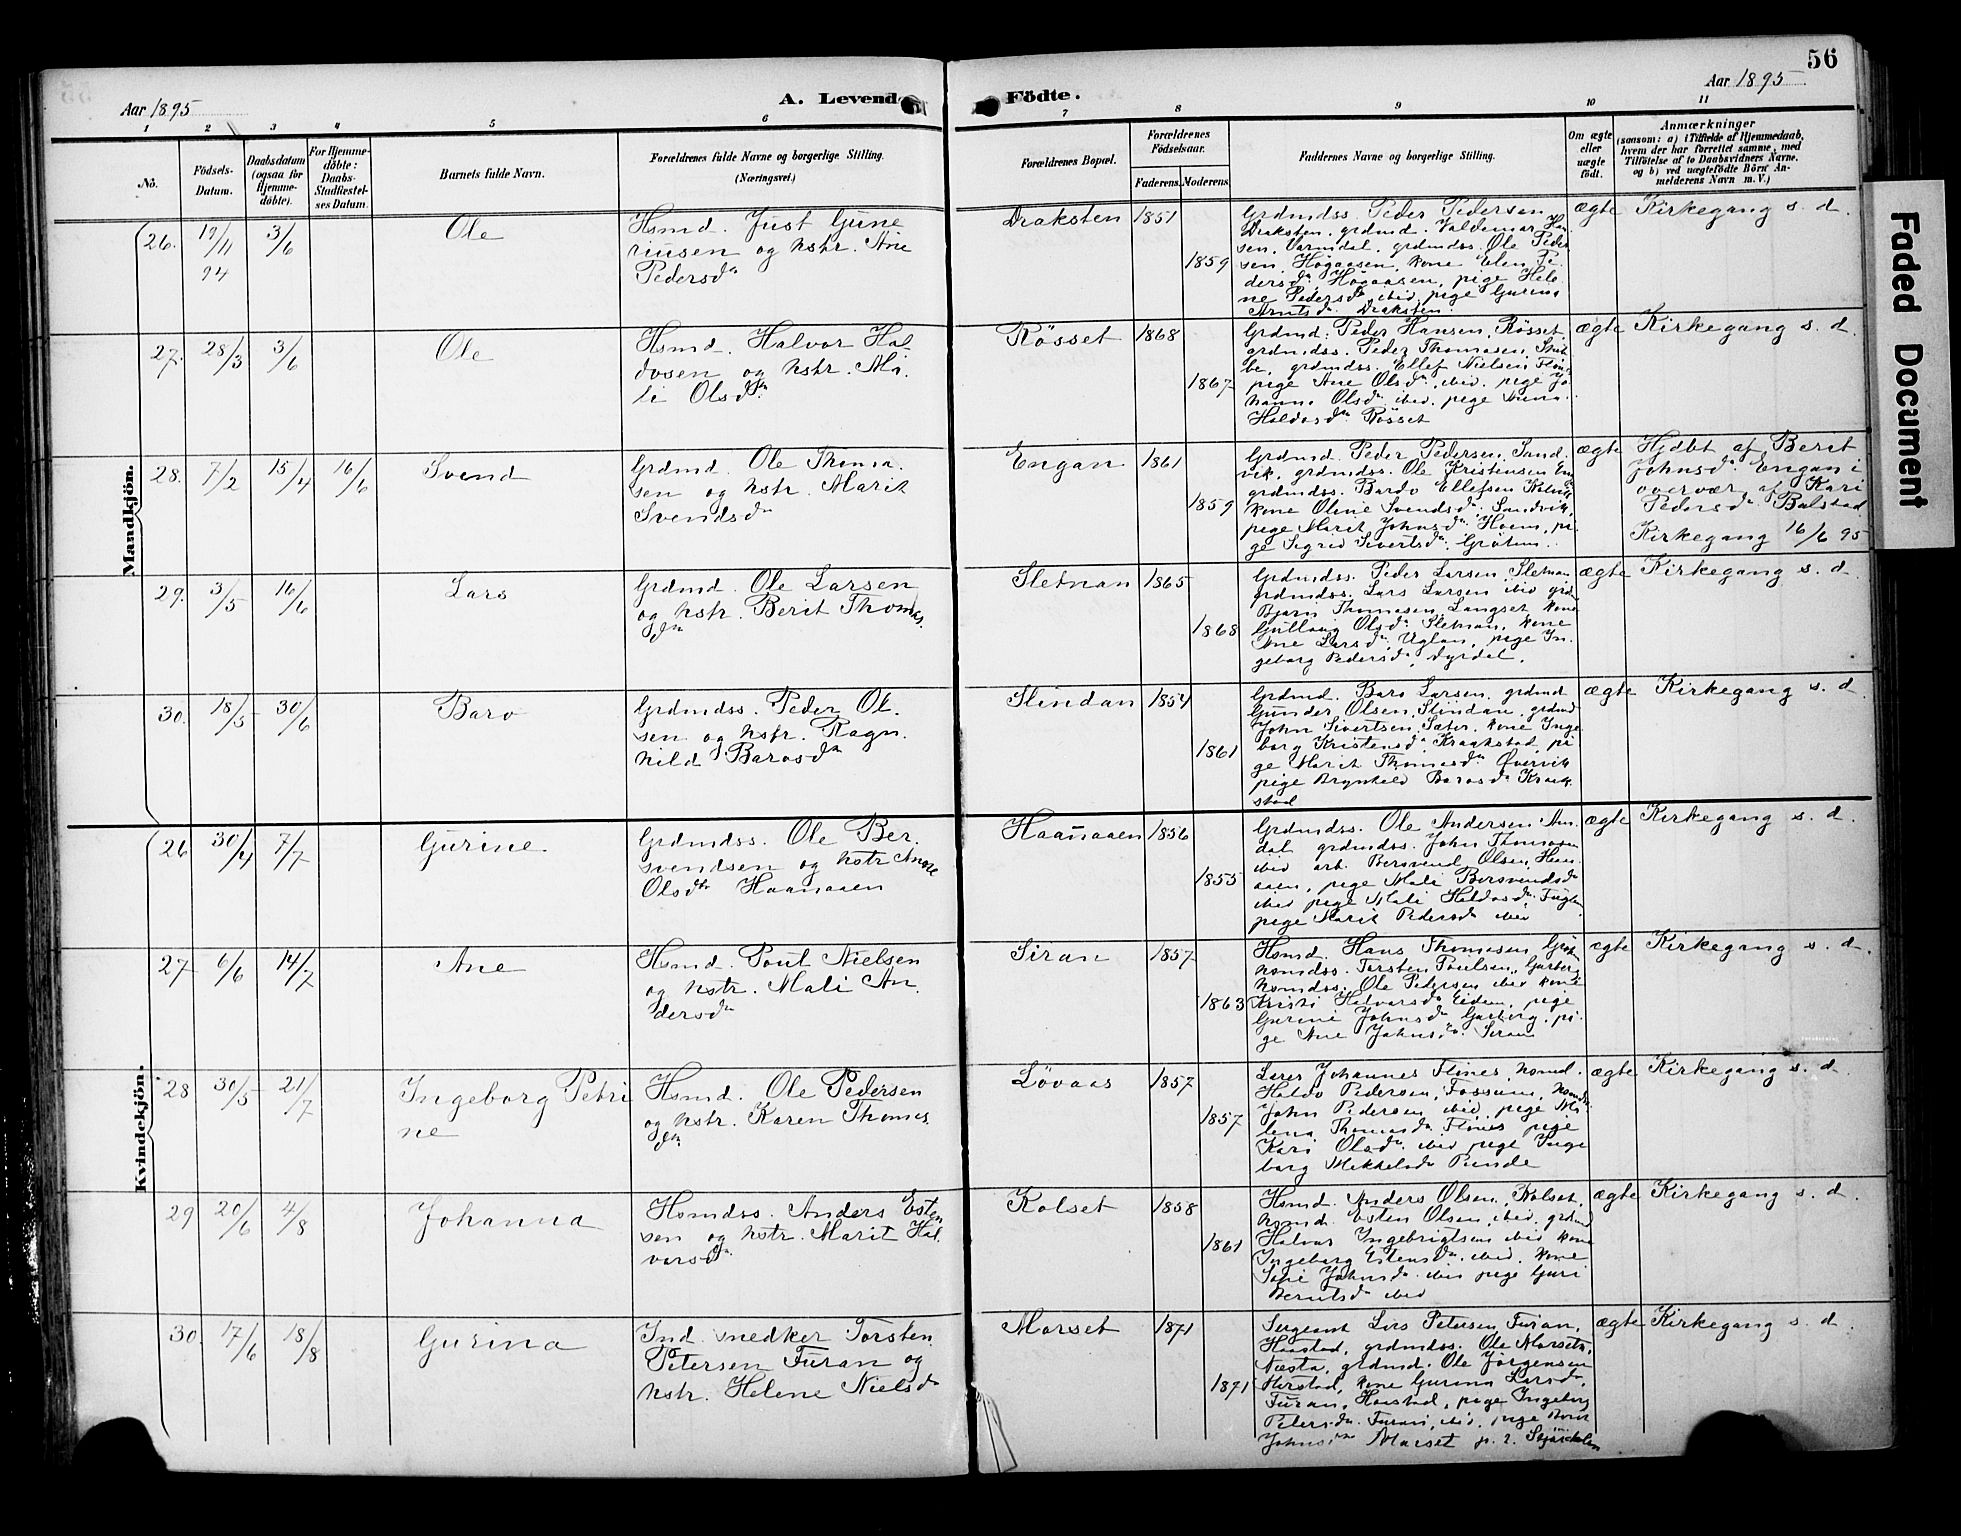 56
Aar 1895
A. Levende Födte.
Aar 1895
1 2 3 4 5 6 7 8 9 10 11
No.
Födsels-
Datum.
Daabsdatum
(ogsaa for
Hjemme-
döbte).
For Hjemme-
döbte:
Daabs-
Stadfæstel-
ses Datum.
Barnets fulde Navn.
Forældrenes fulde Navne og borgerlige Stilling.
(Næringsvei.)
Forældrenes Bopæl.
Forældrenes
Födselsaar.
Faderens.
Moderens.
Faddernes Navne og borgerlige Stilling.
Om ægte
eller
uægte
födt.
Anmærkninger
(saasom: a) i Tilfælde af Hjemmedaab,
hvem der har forrettet samme, med
Tilföielse af to Daabsvidners Navne.
og b) ved uægtefödte Börn An-
melderens Navn m. V.)
Faded Document
Mandkjön.
26. 19/11 94 3/6
Ole
Hsmd. Just Gune
riusen og hstr. Ane
Pedersdtr
Draksten 1851
1859
Grdmdss. Peder Pedersen
Draksten, grdmd. Valdemar Han
sen, Varmdal, grdmdss. Ole Peder
sen, Högaasen, kone Elen Pe
dersdtr Högaasen, pige Hele
ne Pedersdtr ibid, pige Gurine
Arntsdtr Draksten.
ægte
Kirkegang s. d.
27. 28/3 3/6
Ole
Hsmd. Halvor Hal
dosen og hstr. Ma
li Olsdtr
Rösset 1868
1867
Grdmd. Peder Hansen, Rösset,
grdmdss. Peder Thomasen,
be, grdmdss. Ellef Nielsen
pige Ane Olsdtr, ibid. pige Jo
hanna Olsdtr ibid. pige
Haldosdtr Rösset
ægte
Kirkegang s. d.
28. 7/2 15/4 16/6
Svend
Grdmd. Ole Thoma
sen og hstr. Marit
Svendsdtr
Engan 1861
1859
Grdmd. Peder Pedersen, Sand
vik, grdmdss. Ole Kristensen En
grdmdss. Bardo Ellefsen
kone Oline Svendsdtr, Sandvik,
pige Marit Johnsdtr, Hoem, pi
ge Sigrid Sivertsdtr,
ægte
Hjdbt af Berit
Johnsdtr Engan i
overvær af Kari
Pedersdtr Balstad
Kirkegang 16/6 95
29. 3/5 16/6
Lars
Grdmd. Ole Larsen
og hstr. Berit Thomas
dtr
Sletnan 1865
1868
Grdmdss. Peder Larsen, Sletnan
grdmdss. Lars Larsen ibid grd
Bjarn Thomasen, Langset, kone
Gullaug Olsdtr Sletnan, kone
Ane Larsdtr, Uglan, pige In
geborg Pedersdtr, Dyrdal.
ægte
Kirkegang s. d.
30. 18/5 30/6
Baro
Grdmdss. Peder Ol
sen og hstr. Ragn
hild Barosdtr
Slindan 1854
1861
Grdmd. Baro Larsen, grdmd
Gunder Olsen, Slindan, grdmd
John Sivertsen, Sæter, kone Inge
borg Kristensdtr Kraakstad, pi
ge Marit Thomasdtr Övervik
pige Brynhild Barosdtr Kraak
stad
ægte
Kirkegang s. d.
Kvindekjön.
26 30/4 7/7
Gurine
Grdmdss. Ole Ber
svendsen og hstr Anne
Olsdtr Haanaaen
Haanaaen 1856
1855
Grdmdss. Ole Andersen Am
dal grdmdss. John Thomasen
ibid arb. Bersvend Olsen, Haan
aaen, pige Mali Bersvendsdtr
ibid pige Mali Haldosdtr
pige Marit Pedersdtr ibid
ægte
Kirkegang s. d.
27 6/6 14/7
Ane
Hsmd. Poul Nielsen
og hstr. Mali An
dersdtr
Siran 1857
1863
Hsmd. Hans Thomasen
hsmdss. Torsten Poulsen, Garberg
hsmdss. Ole Pedersen ibid kone
Kristi Halvorsdtr Eidem, pige
Gurine Johnsdtr Garberg, pi
ge Ane Johnsdtr Siran
ægte
Kirkegang s. d.
28 30/5 21/7
Ingeborg Petri
ne
Hsmd. Ole Pedersen
og hstr. Karen Thomas
dtr
Lövaas 1857
1857
Lærer Johannes Flönes, hsmd.
Haldo Pedersen, Fossum,
John Pedersen ibid, pige Ma
lena Thomasdtr Flönes pige
Kari Olsdtr ibid pige Inge
borg Mikkelsdtr
ægte
Kirkegang s. d.
29 20/6 4/8
Johanna
Hsmdss. Anders Esten
sen og hstr. Marit Hal
vorsdtr
Kolset 1858
1861
Hsmd. Anders Olsen, Kolset,
hsmd. Esten Olsen, ibid, grdmd
Halvor Ingebrigtsen ibid kone
Ingeborg Estensdtr ibid, kone
Sofie Johnsdtr ibid pige Guri
Berntsdtr ibid
ægte
Kirkegang s. d.
30. 17/6 18/8
Gurina
Ind. snedker Torsten
Petersen Furan og
hstr. Helene Nielsdtr
Marset 1871
1871
Sergeant Lars Petersen Furan,
Haastad, grdmdss. Ole Marset,
Næsta, grdmd. Ole Jörgensen
kone Gurina Larsdtr,
Furan, Haastad, pige Ingeborg
Petersdtr Furan, ibid, pige
Johnsdtr Marset p. t.
ægte
Kirkegang s. d.